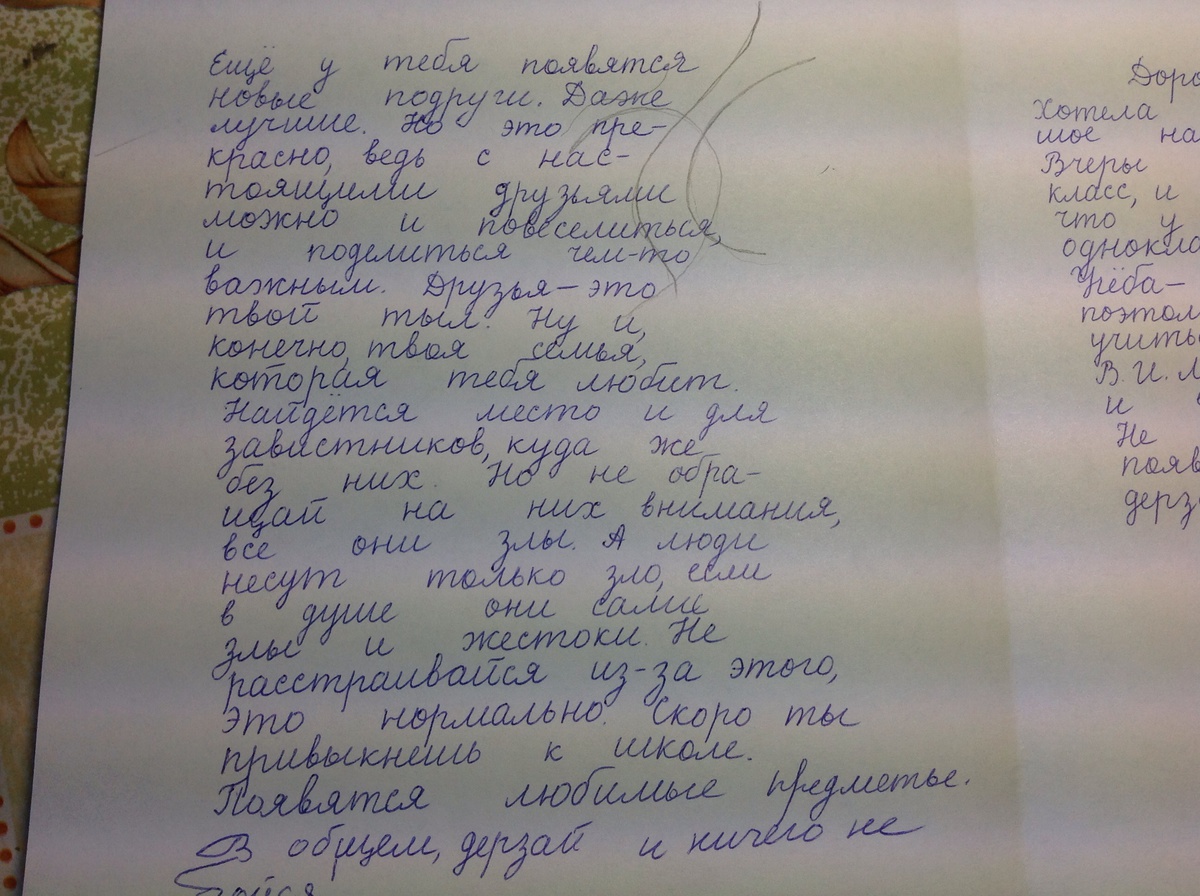 Ещё у тебя появятся
новые подруги. Даже
лучшие. Но это пре-
красно, ведь с нас-
тоящими друзьями
можно и повеселиться,
и поделиться чем-то
важным. Друзья - это
твой тыл. Ну и,
конечно, твоя семья,
которая тебя любит.
Найдётся место и для
завистников, куда же
без них. Но не обра-
щай на них внимания,
все они злы. А люди
несут только зло, если
в душе они сами
злы и жестоки. Не
расстраивайся из-за этого,
это нормально. Скоро ты
привыкнешь к школе.
Появятся любимые предметы.
В общем, дерзай и ничего не
бойся
Доро
Хотела
шое на
Вчеры
класс, и
что у
однокла
Учёба-
поэтом
учитьс
В. И. Л
и
Не
появ
дерз